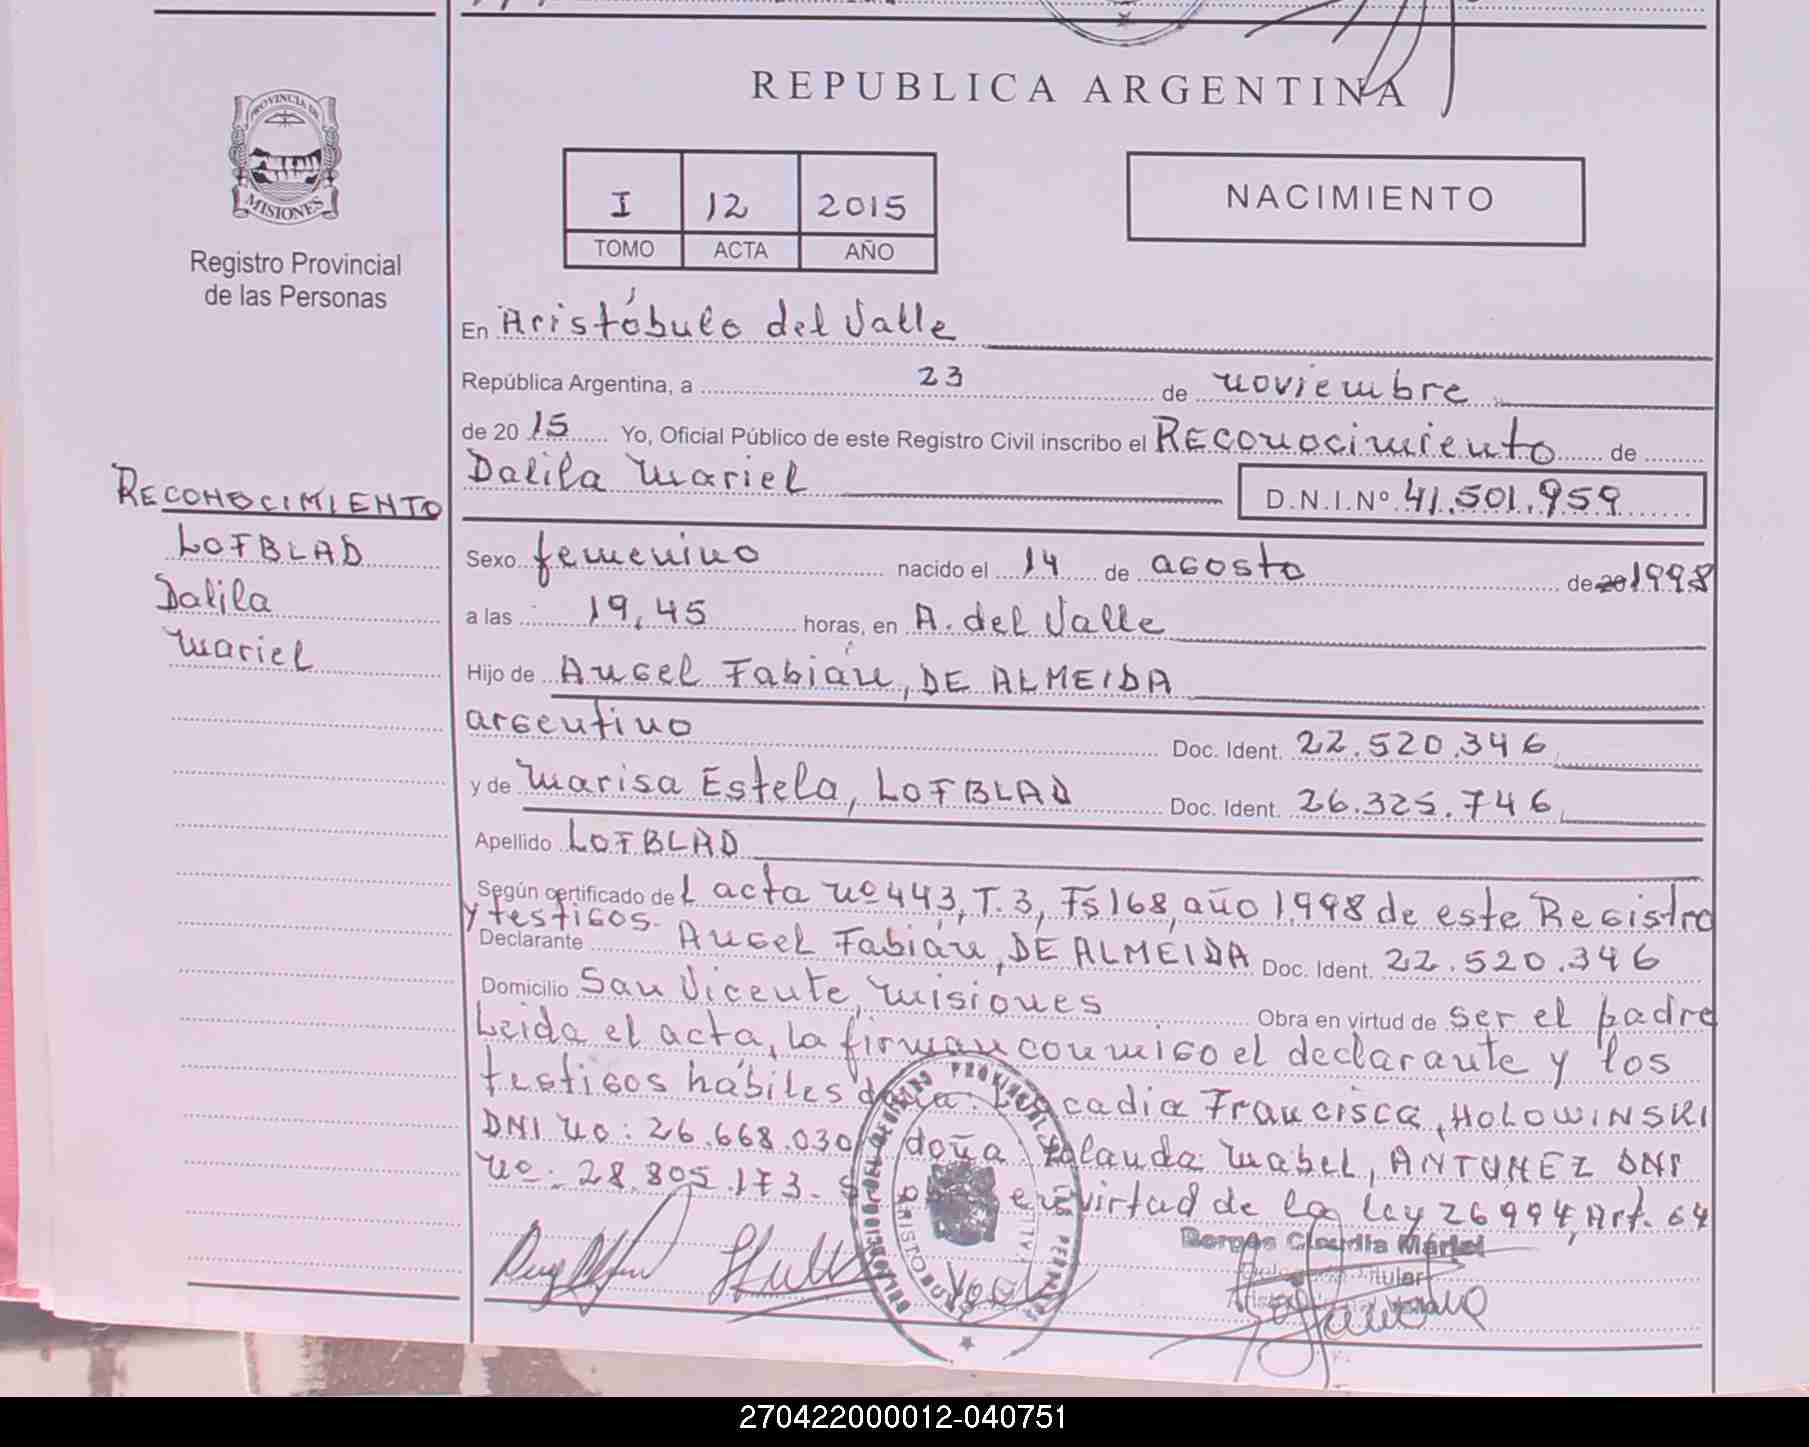 REPUBLICA ARGENTINA
PROVINCIA DE
MISIONES
Registro Provincial
de las Personas
I 12 2015
TOMO ACTA AÑO
NACIMIENTO
En Aristóbulo del Valle
República Argentina, a 23 de noviembre
de 20 15 Yo, Oficial Público de este Registro Civil inscribo el Reconocimiento de
Dalila Mariel D.N.I.Nº 41.501.959
RECONOCIMIENTO
LOFBLAD
Dalila
Mariel
Sexo femenino nacido el 14 de agosto de 20 1998
a las 19,45 horas, en A. del Valle
Hijo de Angel Fabián, DE ALMEIDA
argentino Doc. Ident. 22.520.346
y de Marisa Estela, LOFBLAD Doc. Ident. 26.325.746
Apellido LOFBLAD
Según certificado del acta nº 443, T.3, Fs 168, año 1998 de este Registro
y testigos.
Declarante Angel Fabián, DE ALMEIDA Doc. Ident. 22.520.346
Domicilio San Vicente, Misiones Obra en virtud de ser el padre
Leida el acta, la firman conmigo el declarante y los
testigos hábiles doña: Leocadia Francisca, HOLOWINSKI
DNI no: 26.668.030 doña Yolanda Mabel, ANTUNEZ DNI
nº: 28.805.173. en virtad de la ley 26994, Art. 64
Borges Claudia Mariel
Titular
270422000012-040751